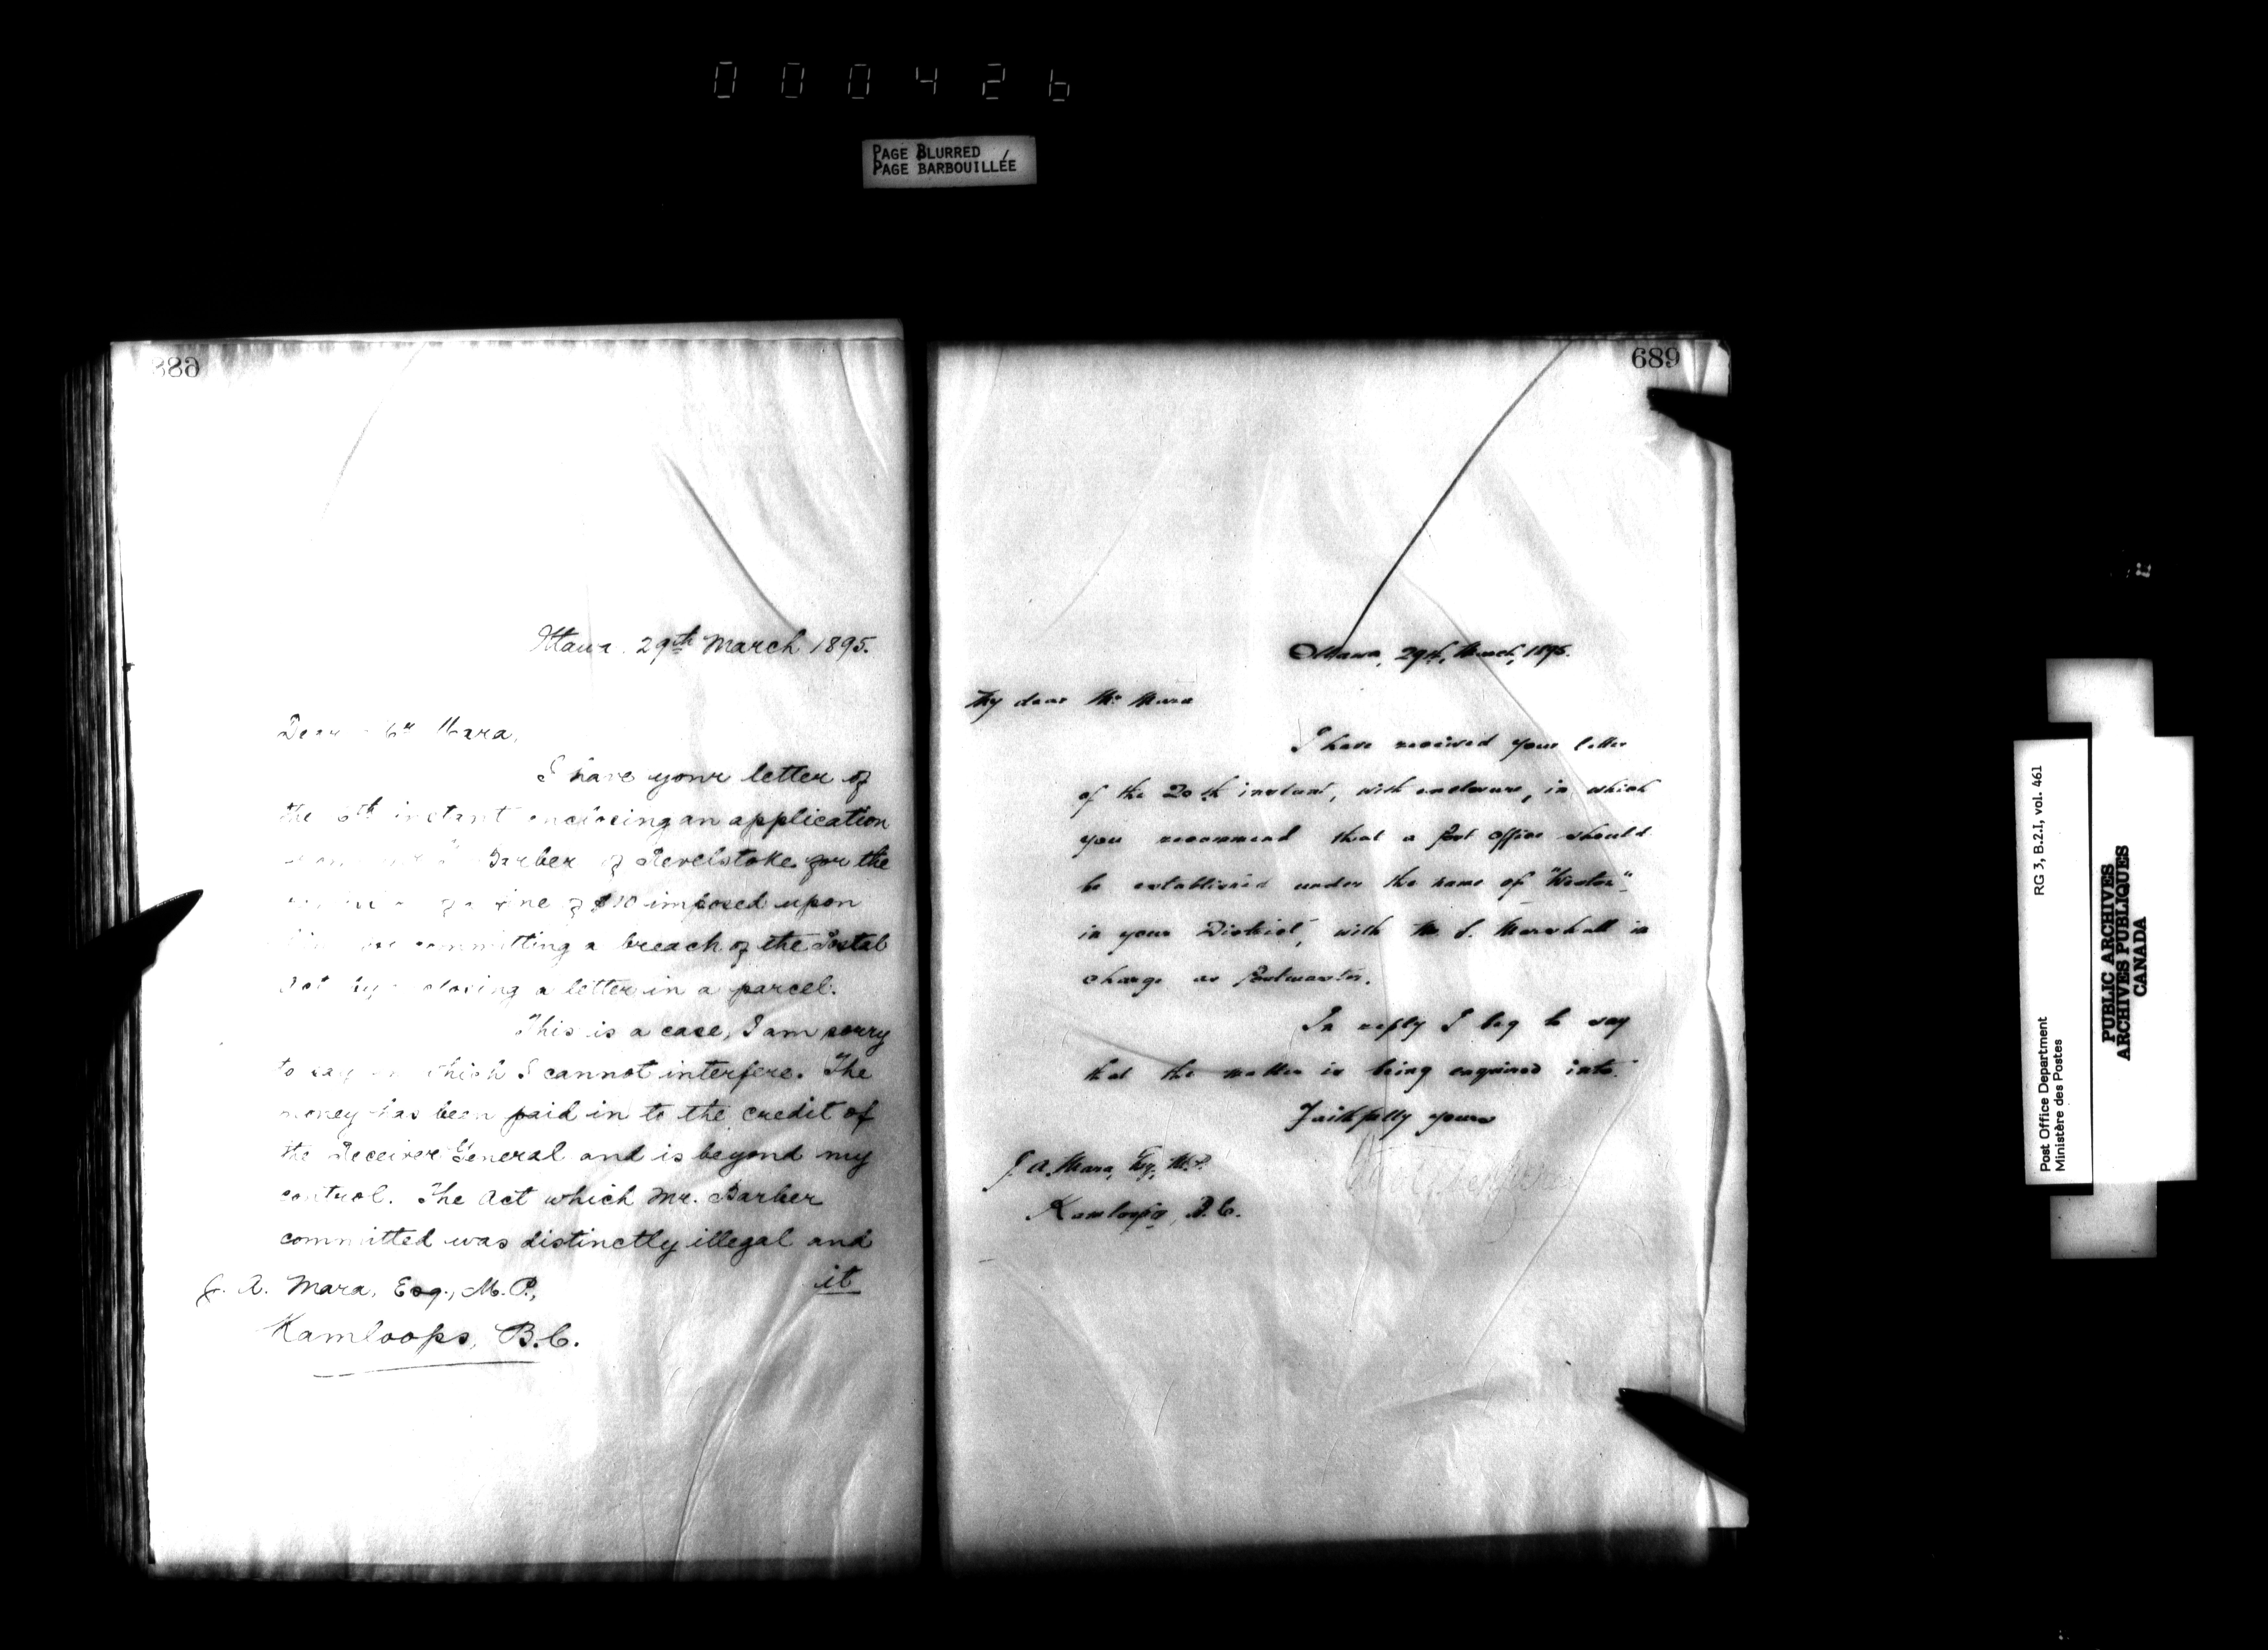 000426
PAGE BLURRED
PAGE BARBOUILLÉE
Ottawa, 29th March 1895.
Dear Mr Mara,
I have your letter of
the instant encloseing an application
Barber of Revelstoke for the
fine of $10 imposed upon
committing a breach of the Postal
Act by closing a letter in a parcel.
This is a case, I am sorry
to say in which I cannot interfere. The
money has been paid in to the credit of
the Receiver General and is beyond my
control. The Act which Mr. Barber
committed was distinctly illegal and
it
J. A. Mara, Esq., M.P.,
Kamloops, B.C.
689
Ottawa, 29th, March, 1895.
My dear Mr Mara
I have received your letter
of the 20th instant, with enclosure, in which
you recommend that a Post Office should
be established under the name of
in your District, with Mr. S. Marshall in
charge as Postmaster.
In reply I beg to say
that the matter is being enquired into.
Faithfully yours
J. A. Mara, Esq. M.P.
Kamloops, B.C.
Post Office Department
Ministère des Postes
RG 3, B.2.I, vol. 461
PUBLIC ARCHIVES
ARCHIVES PUBLIQUES
CANADA